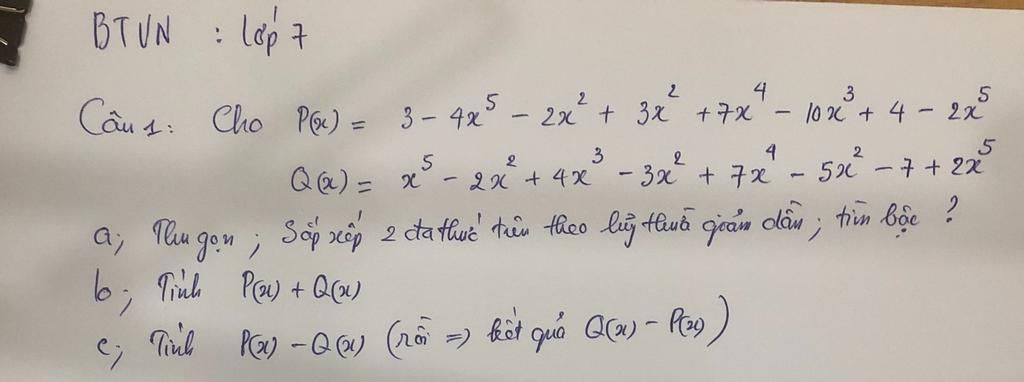 BTVN : lớp 7
Câu 1: Cho P(x) = 3 - 4x⁵ - 2x² + 3x² + 7x⁴ - 10x³ + 4 - 2x⁵
Q(x) = x⁵ - 2x² + 4x³ - 3x² + 7x⁴ - 5x² - 7 + 2x⁵
a; Thu gọn ; Sắp xếp 2 đa thức trên theo luỹ thừa giảm dần ; tìm bậc ?
b; Tính P(x) + Q(x)
c; Tính P(x) - Q(x) (rồi => kết quả Q(x) - P(x))